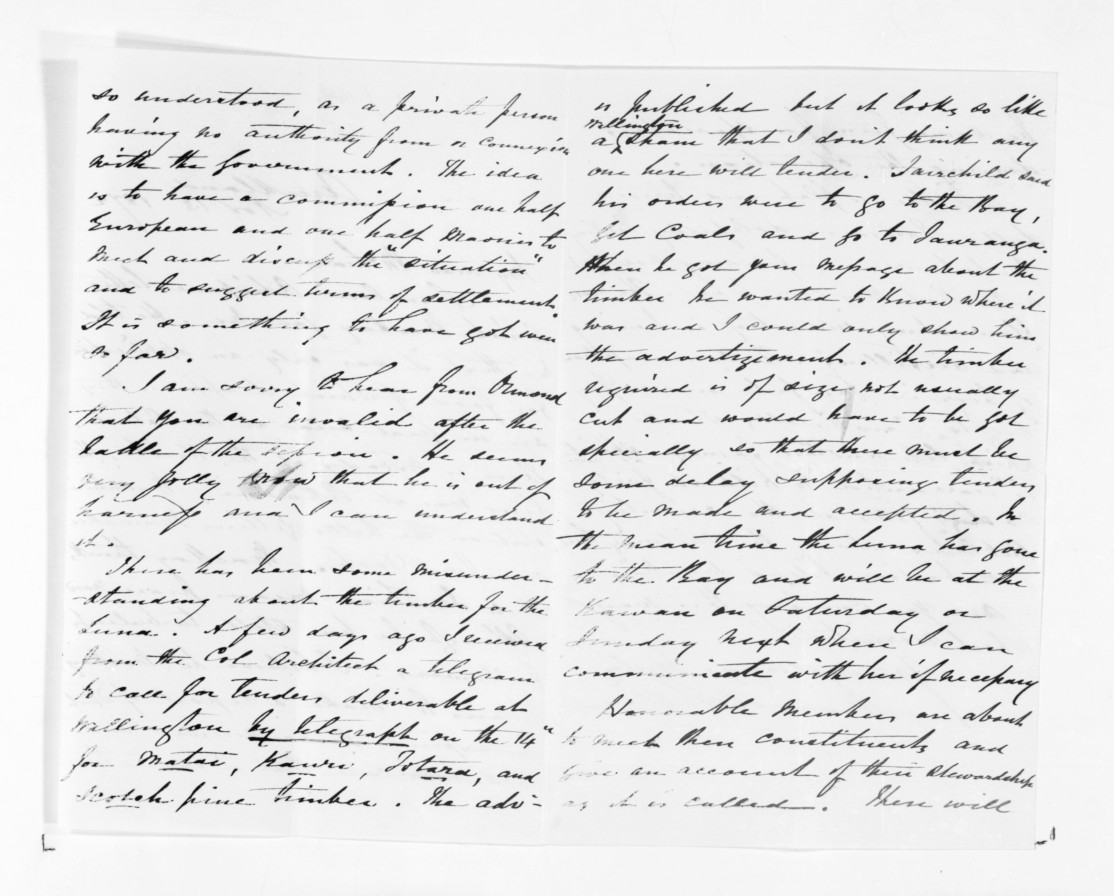 so understood, as a private person
having no authority from or connexion
with the Government. The idea
is to have a commission one half
European and one half Maories to
meet and discuss the "situation"
and to suggest terms of settlement.
It is something to have got even
so far.
I am sorry to hear from Ormond
that you are invalid after the
battle of the session. He seems
very jolly now that he is out of
harness and I can understand
it.
There has been some misunder-
-standing about the timber for the
Luna. A few days ago I received
from the Col Architect a telegram
to call for tenders deliverable at
Wellington by telegraph on the 14"
for Matai, Kawri, Totara, and
Scotch pine timber. The adv-
is published but it looks so like
a Wellington sham that I don't think any
one here will tender. Fairchild said
his orders were to go to the Bay,
Get Coals and go to Tauranga.
When he got your message about the
timber he wanted to know where it
was and I could only show him
the advertizement. The timber
required is of size not usually
cut and would have to be got
specially so that there must be
some delay supposing tenders
to be made and accepted. In
the mean time the Luna has gone
to the Bay and will be at the
Kawau on Saturday or
Sunday next where I can
communicate with her if necessary
Honorable Members are about
to meet their constituents and
give an account of their stewardship
as it is called. There will